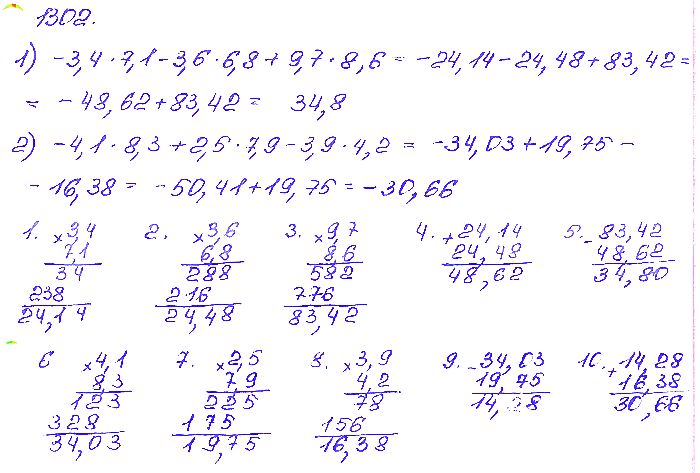 1302.
1) -3,4·7,1-3,6·6,8+9,7·8,6= -24,14-24,48+83,42=
= -48,62+83,42= 34,8
2) -4,1·8,3+2,5·7,9-3,9·4,2= -34,03+19,75-
-16,38= -50,41+19,75=-30,66
1. ×3,4 2. ×3,6 3. ×9,7 4. +24,14 5. -83,42
7,1 6,8 8,6 24,48 48,62
34 288 582 48,62 34,80
238 216 776
24,14 24,48 83,42
6 ×4,1 7. ×2,5 8. ×3,9 9. -34,03 10. +14,28
8,3 7,9 4,2 19,75 16,38
123 225 78 14,28 30,66
328 175 156
34,03 19,75 16,38